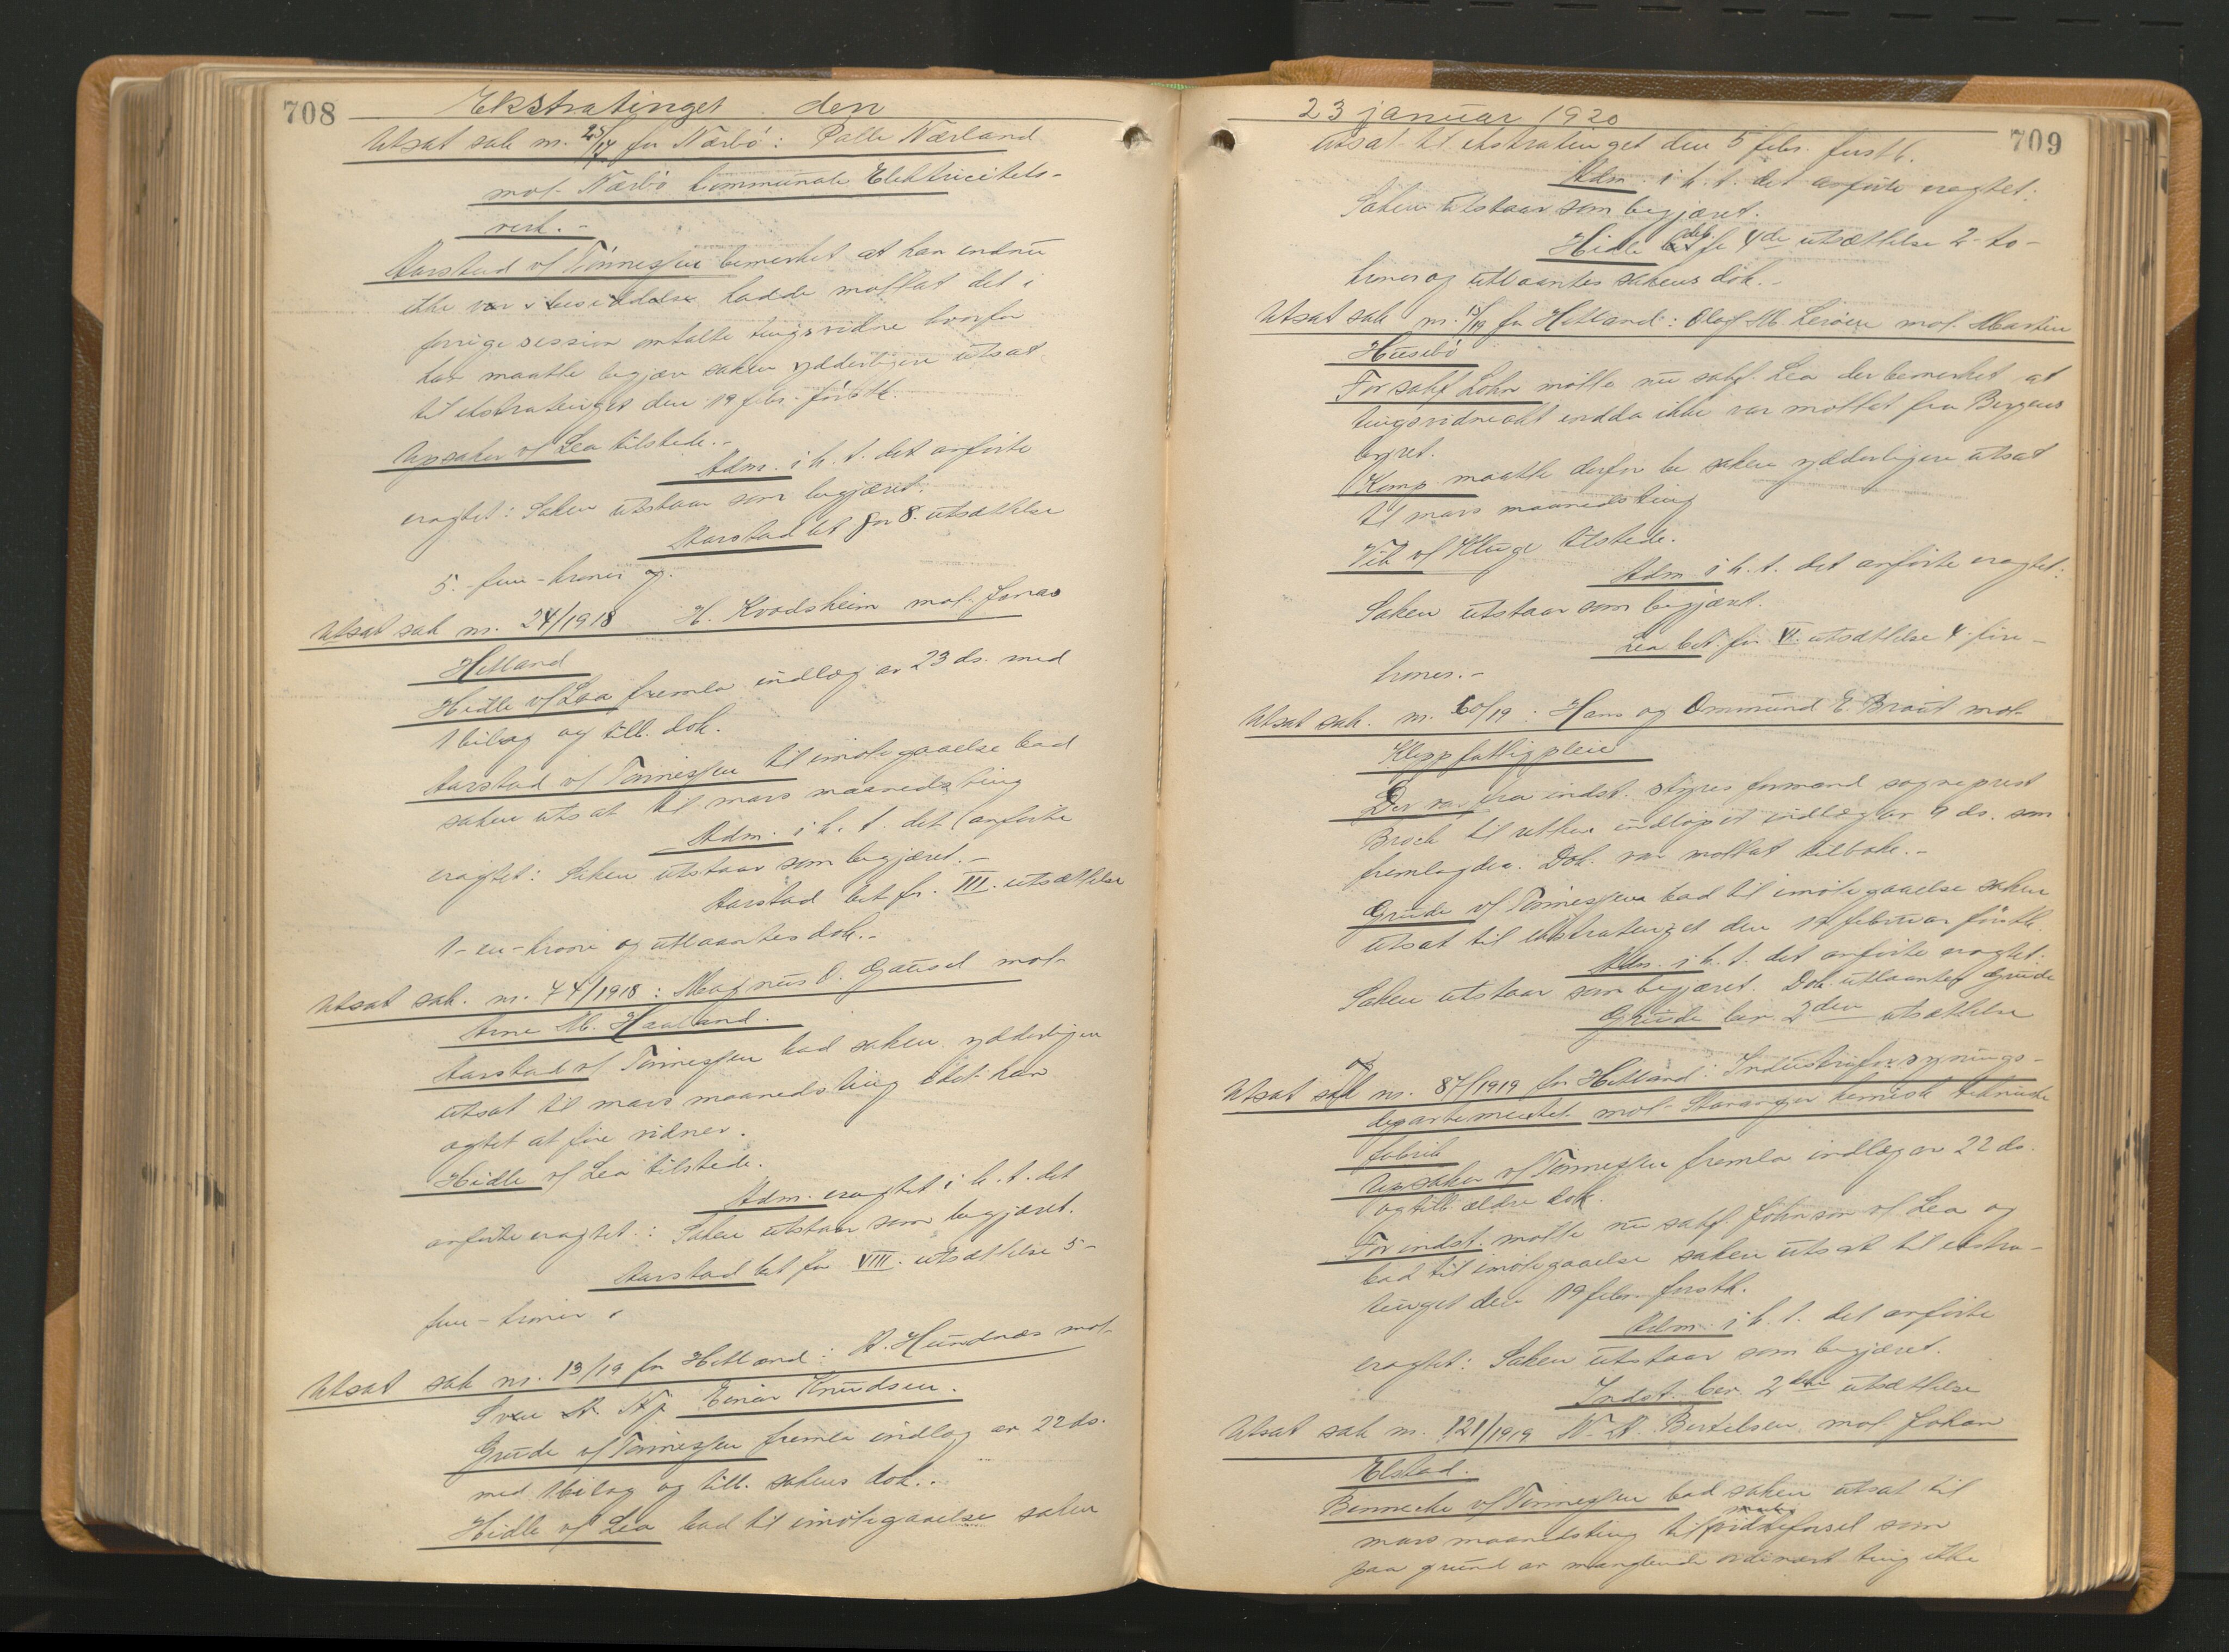 708
Ekstratinget den
Utsat sak nr. 25/17 for Nærbö: Palle Nærland
mot Nærbö kommunale Elektricitets-
verk.-
Aarstad v/ Tönnessen bemerket at han endnu
ikke var i besiddelse hadde mottat det i
forrige session omtalte tingsvidne hvorfor
han maatte begjære saken ydderligere utsat
til ekstratinget den 19 febr. förstk.
Opsaker v/ Lea tilstede.-
Adm. i h. t. det anförte
eragtet: Saken utstaar som begjæret.
Aarstad bet for 8. utsættelse
5.-fem-kroner og.
Utsat sak nr. 24/1918 H. Kvodsheim mot Jonas
Hetland
Hidle v/ Lea fremla indlæg av 23 ds. med
1 bilag og till. dok.
Aarstad v/ Tönnessen til imötegaaelse bad
saken utsat til mars maanedsting
Adm. i h. t. det anförte
eragtet: Saken utstaar som begjæret.-
Aarstad bet for. III. utsættelse
1-en-krone og utlaantes dok.-
Utsat sak. nr. 74/1918: Magnus O. Gausel mot
Arne M. Haaland.
Aarstad v/ Tönnessen bad saken ydderligere
utsat til mars maanedsting idet han
agtet at före vidner.
Hidle v/ Lea tilstede.
Adm. eragtet i h. t. det
anförte eragtet.: Saken utstaar som begjæret.
Aarstad bet for VIII. utsættelse 5-
fem-kroner.
Utsat sak nr. 13/19 for Hetland: A. Hundnæs mot
Einar Knudsen.
Grude v/ Tönnessen fremla indlæg av 22 ds.
med 1 bilag og till. sakens dok..
Hidle v/ Lea bad til imötegaaelse saken
23 januar 1920
709
utsat til ekstratinget den 5 febr. förstk.
Adm. i h. t. det anförte eragtet:
Saken utstaar som begjæret.
Hidle bet. for 4de utsættelse 2-to-
kroner og utlaantes sakens dok.-
Utsat sak nr. 15/19 for Hetland: Olaf M. Leröen mot Martin
Husebö
For sakf Lohn mötte nu sakf. Lea der bemerket at
tingsvidneakt endda ikke var mottat fra Bergens
byret.
Komp. maatte derfor be saken ydderligere utsat
til mars maanedsting
Vik v/ Kluge tilstede.
Adm. i h. t. det anförte eragtet:
Saken utstaar som begjæret.
Lea bet. for VI. utsættelse 4-fire-
kroner.-
Utsat sak. nr. 60/19: Hans og Ommund E. Braut mot
Klepp fattigpleie
Der var fra indst. styres formand sogneprest
Brock til retten indlöpet indlæg av 9 ds. som
fremlagdes. Dok. var mottat tilbake.-
Grude v/ Tönnessen bad til imötegaaelse saken
utsat til ekstratinget den 19 februar förstk.
Adm. i h. t. det anförte eragtet:
Saken utstaar som begjæret. Dok. utlaantes Grude
Grude ber. 2den utsættelse
og
Utsat sak nr. 87/1919 for Hetland: Industriforsynings-
departementet mot Stavanger kemisk tekniske
fabrik
Opsaker v/ Tönnessen fremla indlæg av 22 ds.
og till. ældre dok.
For indst. mötte nu sakf. Johnson v/ Lea og
bad til imötegaaelse saken utsat til ekstra-
tinget den 19 febr. förstk.
Adm. i h. t. det anförte
eragtet: Saken utstaar som begjæret.
Indst. ber. 2den utsættelse
Utsat sak nr. 121/1919 N. A. Bertelsen mot Johan
Elstad.
Bennecke v/ Tönnessen bad saken utsat til
mars maanedsting til vidneförsel som
paa grund av manglende ordinært ting ikke